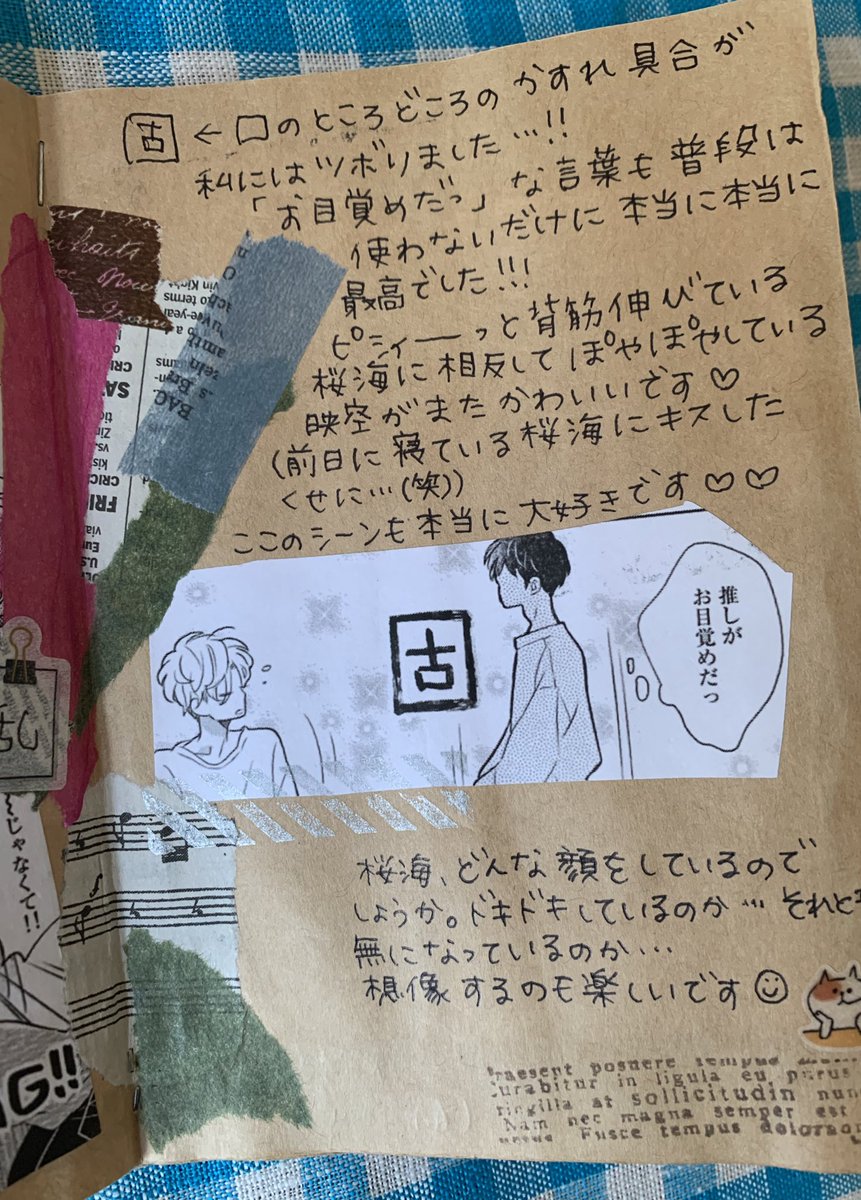 古 ← 口のところどころのかすれ具合が
私にはツボりました…!!
「お目覚めだっ」な言葉も普段は
使わないだけに本当に本当に
最高でした!!!
ピシィーーっと背筋伸びている
桜海に相反してぽやぽやしている
映空がまたかわいいです♡
(前日に寝ている桜海にキスした
くせに…(笑))
ここのシーンも本当に大好きです♡♡
推しが
お目覚めだっ
固
桜海、どんな顔をしているので
しょうか。ドキドキしているのか…それとも
無になっているのか…
想像するのも楽しいです
じゃなくて!!
G!!
BAC
CRIC
FRI
via
Eur
U.S
Praesent posuere tempus
urabitur in ligula eu purus
ringilla at sollicitudin nun
Nam nec magna semper est
Fusce tempus